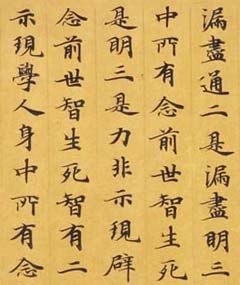 漏盡通二是漏盡明三
中所有念前世智生死
是明三是力非示現辟
念前世智生死智有二
示現學人身中所有念